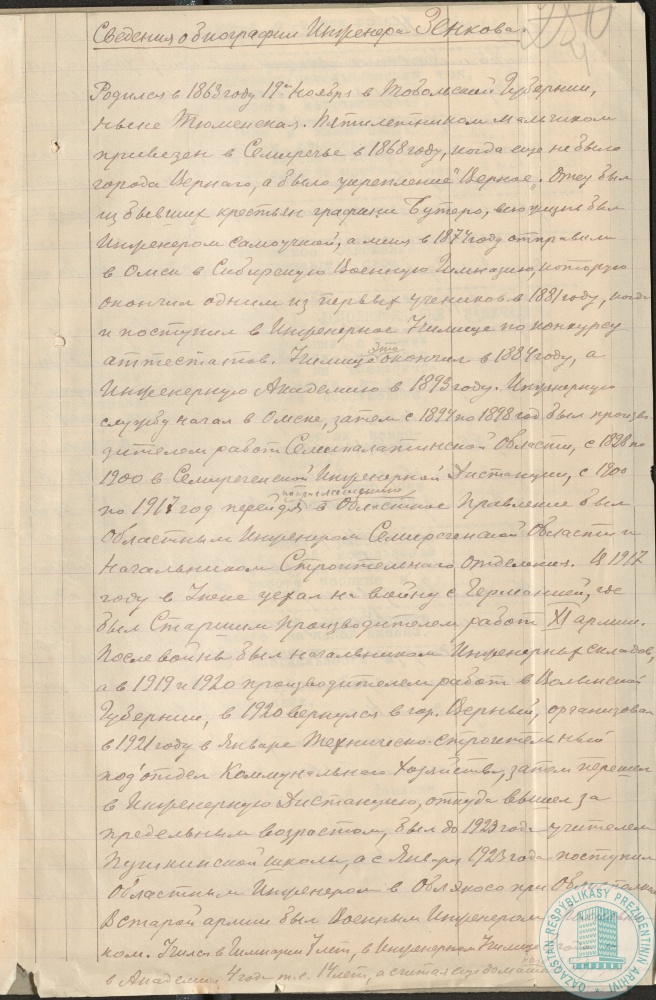 Сведения о биографии Инженера Зенкова.
Родился в 1863 году 19го Ноября в Тобольской Губернии,
ныне Тюменская. Пятилетником мальчиком
привезен в Семиречье в 1868 году, когда еще не было
города Вернаго, а было укрепление "Верное". Отец был
из бывших крестьян графини Бутеро, всю жизнь был
Инженером самоучкой, а меня в 1874 году отправили
в Омск в Сибирскую Военную Гимназию, которую
окончил одним из первых учеников в 1881 году, когда
и поступил в Инженерное Училище по конкурсу
аттестатов. Училище это окончил в 1884 году, а
Инженерную Академию в 1893 году. Инженерную
службу начал в Омске, затем с 1894 по 1898 год был произво-
дителем работ Семипалатинской Области, с 1898 по
1900 в Семиреченской Инженерной Дистанции, с 1900
по 1917 год перейдя в Областное Правление был
Областным Инженером Семиреченской Области и
Начальником Строительного отделения. В 1917
году в Июне уехал на войну с Германией, где
был Старшим производителем работ XI армии.
После войны был начальником Инженерных складов,
а в 1919 и 1920 производителем работ в Волынской
Губернии, в 1920 вернулся в гор. Верный, организовал
в 1921 году в Январе Техническо-строительный
под'отдел Коммунального Хозяйства, затем перешел
в Инженерную Дистанцию, откуда вышел за
предельным возрастом, был до 1923 года учителем
Пушкинской школы, а с Января 1923 года поступил
Областным Инженером в
В старой армии был Военным Инженером
ком. Учился в Гимназии 7 лет, в Инженерном Училище
в Академии 4 года т.е. 14 лет, а считая еще
QAZAQSTAN RESPÝBLIKASY PREZIDENTINIŃ ARHIVI